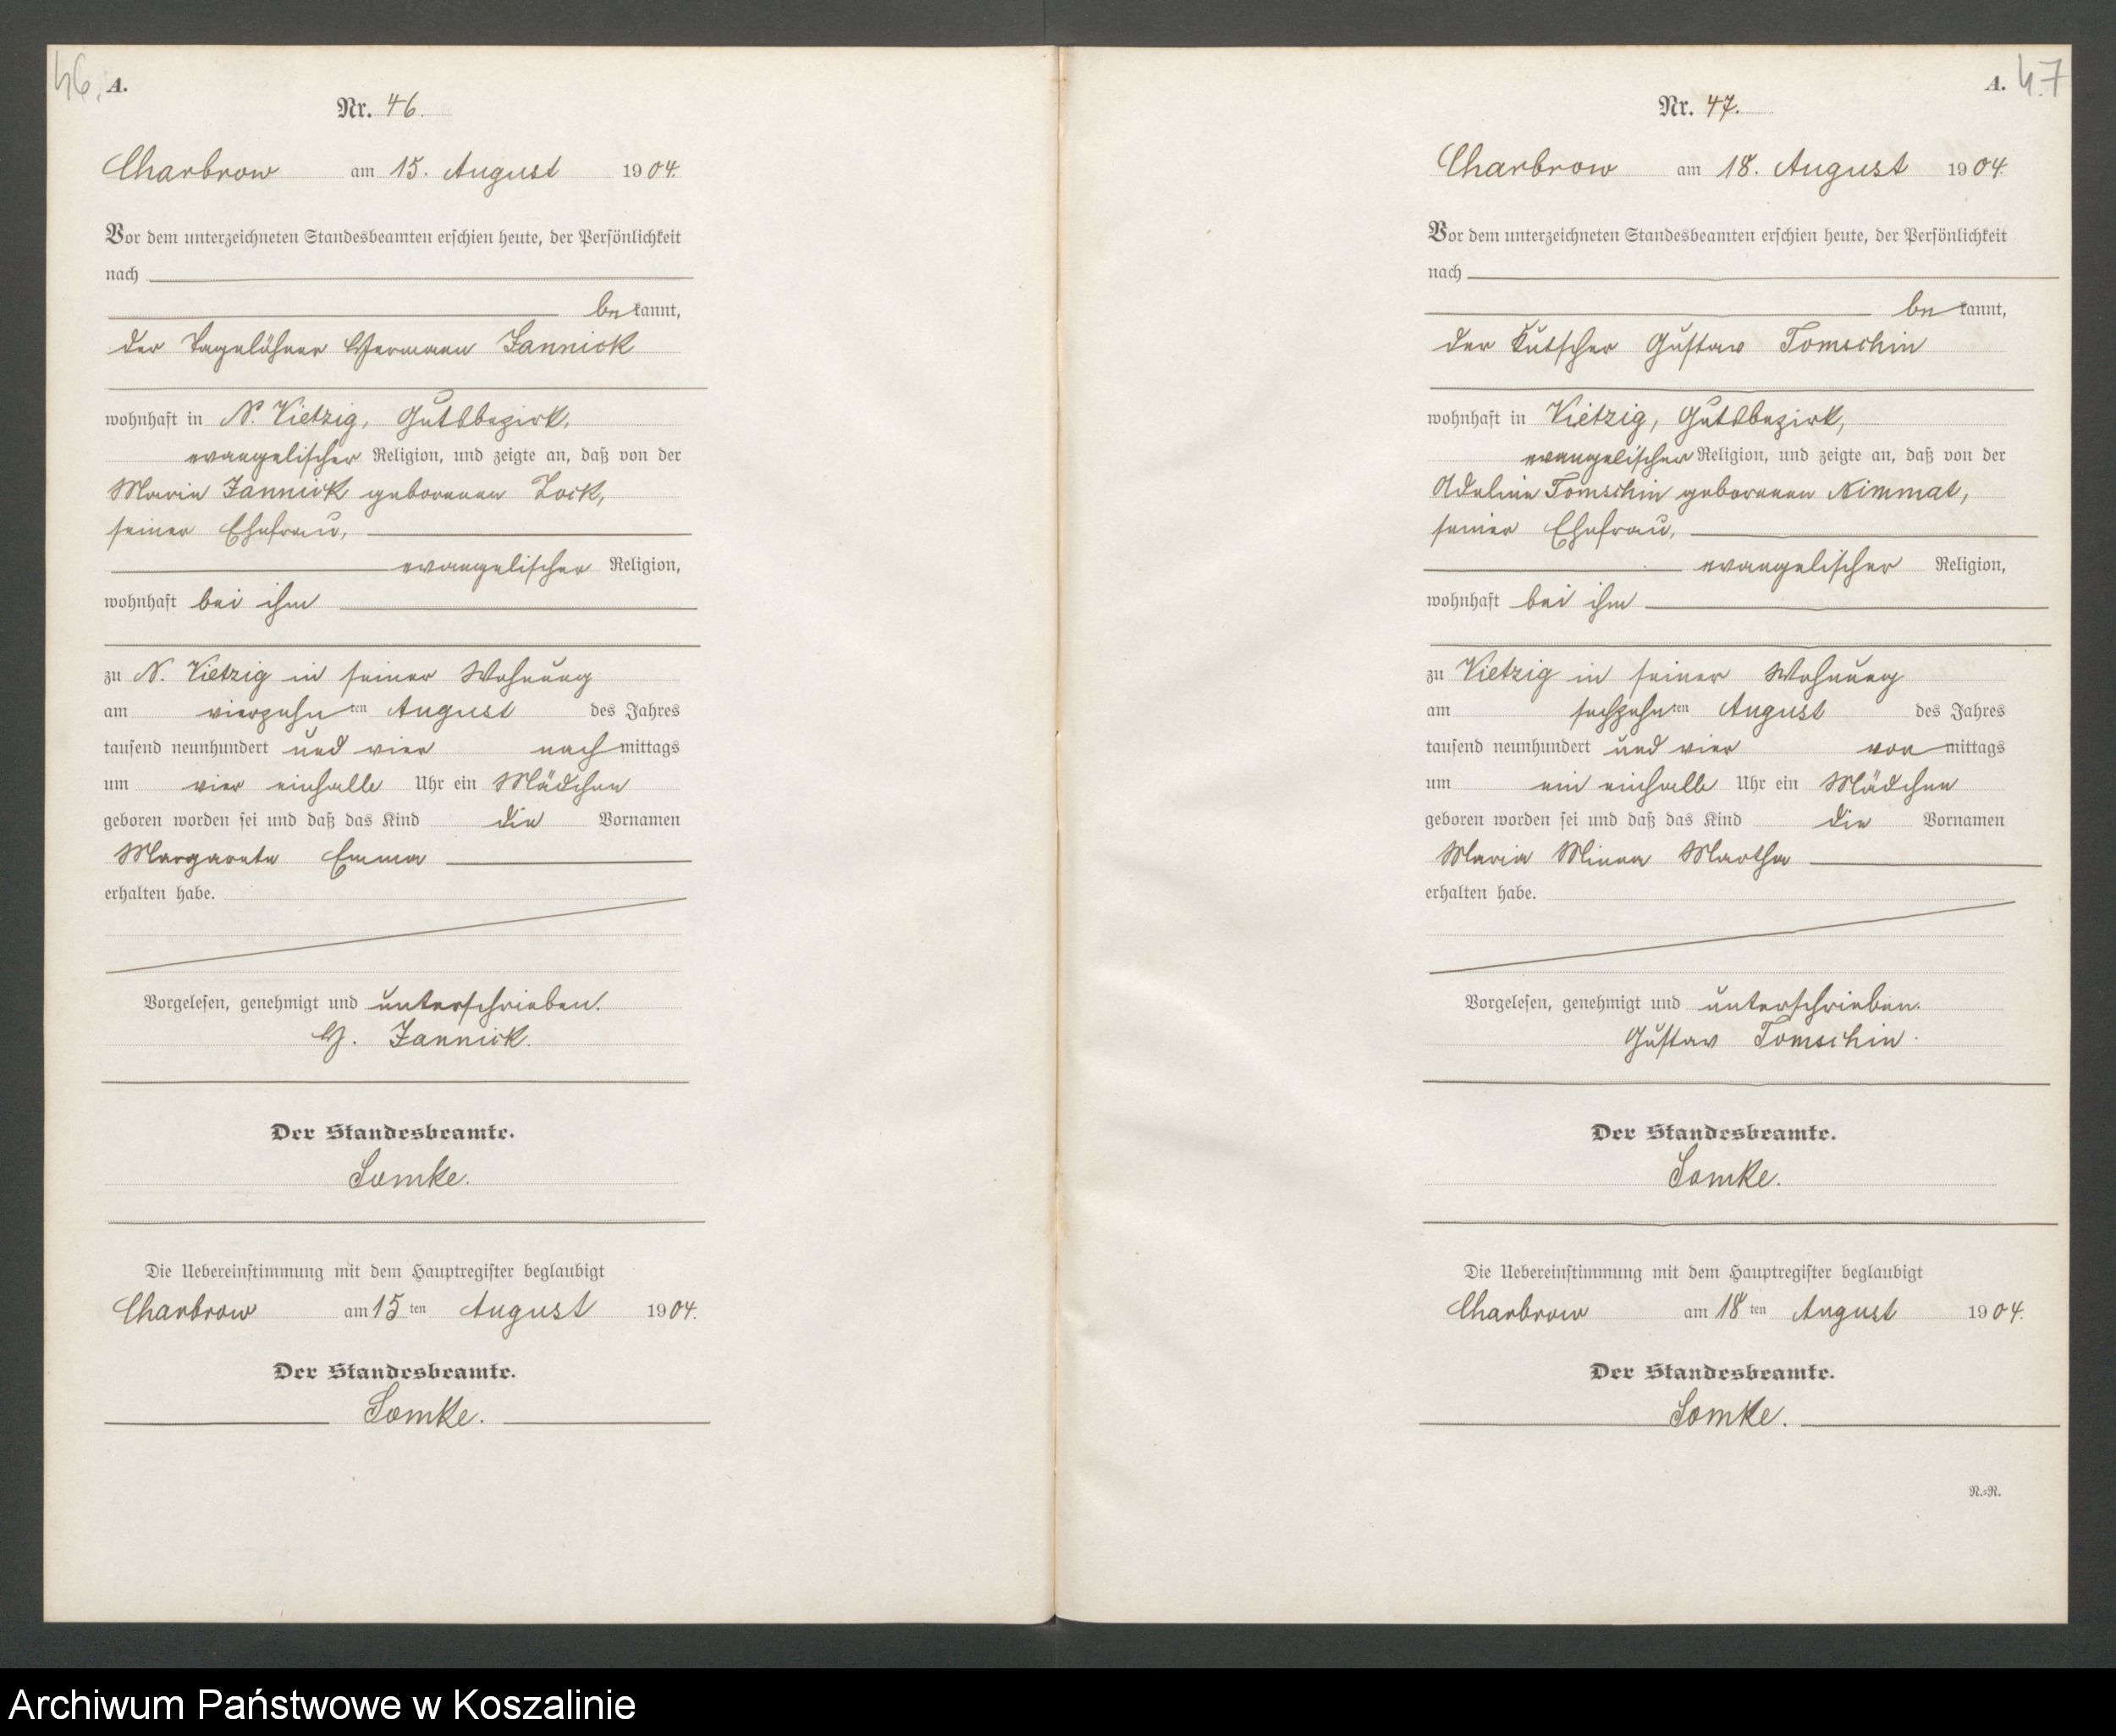 46.
A.
Nr. 46.
Charbrow am 15. August 1904.
Vor dem unterzeichneten Standesbeamten erschien heute, der Persönlichkeit
nach
bekannt,
der Tagelöhner Hermann Jannick
wohnhaft in N. Vietzig, Gutsbezirk,
evangelischer Religion, und zeigte an, daß von der
Marie Jannick geborenen Zock,
seiner Ehefrau,
evangelischer Religion,
wohnhaft bei ihm
zu N. Vietzig in seiner Wohnung
am vierzehnten August des Jahres
tausend neunhundert und vier nachmittags
um vier einhalb Uhr ein Mädchen
geboren worden sei und daß das Kind die Vornamen
Margarete Emma
erhalten habe.
Vorgelesen, genehmigt und unterschrieben.
H. Jannick.
Der Standesbeamte.
Lomke.
Die Uebereinstimmung mit dem Hauptregister beglaubigt
Charbrow am 15ten August 1904.
Der Standesbeamte.
Lomke.
A. 47
Nr. 47.
Charbrow am 18. August 1904.
Vor dem unterzeichneten Standesbeamten erschien heute, der Persönlichkeit
nach
bekannt,
der Kutscher Gustav Tomschin
wohnhaft in Vietzig, Gutsbezirk,
evangelischer Religion, und zeigte an, daß von der
Adeline Tomschin geborenen Nimmat,
seiner Ehefrau,
evangelischer Religion,
wohnhaft bei ihm
zu Vietzig in seiner Wohnung
am sechzehnten August des Jahres
tausend neunhundert und vier vormittags
um ein einhalb Uhr ein Mädchen
geboren worden sei und daß das Kind die Vornamen
Maria Minna Martha
erhalten habe.
Vorgelesen, genehmigt und unterschrieben.
Gustav Tomschin.
Der Standesbeamte.
Lomke.
Die Uebereinstimmung mit dem Hauptregister beglaubigt
Charbrow am 18ten August 1904.
Der Standesbeamte.
Lomke.
N.=R.
Archiwum Państwowe w Koszalinie